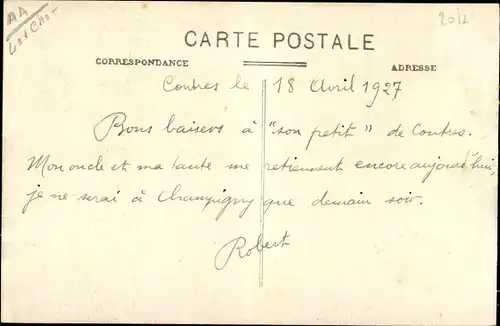 AA
2012
CARTE POSTALE
CORRESPONDANCE
ADRESSE
Contres le 18 Avril 1927
Bons baisers à "son petit" de Contres.
Mon oncle et ma tante me retiennent encore aujourd'hui,
je ne serai à Champigny que demain soir.
Robert